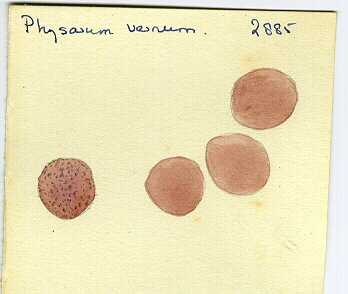 Physarum vernum. 2885